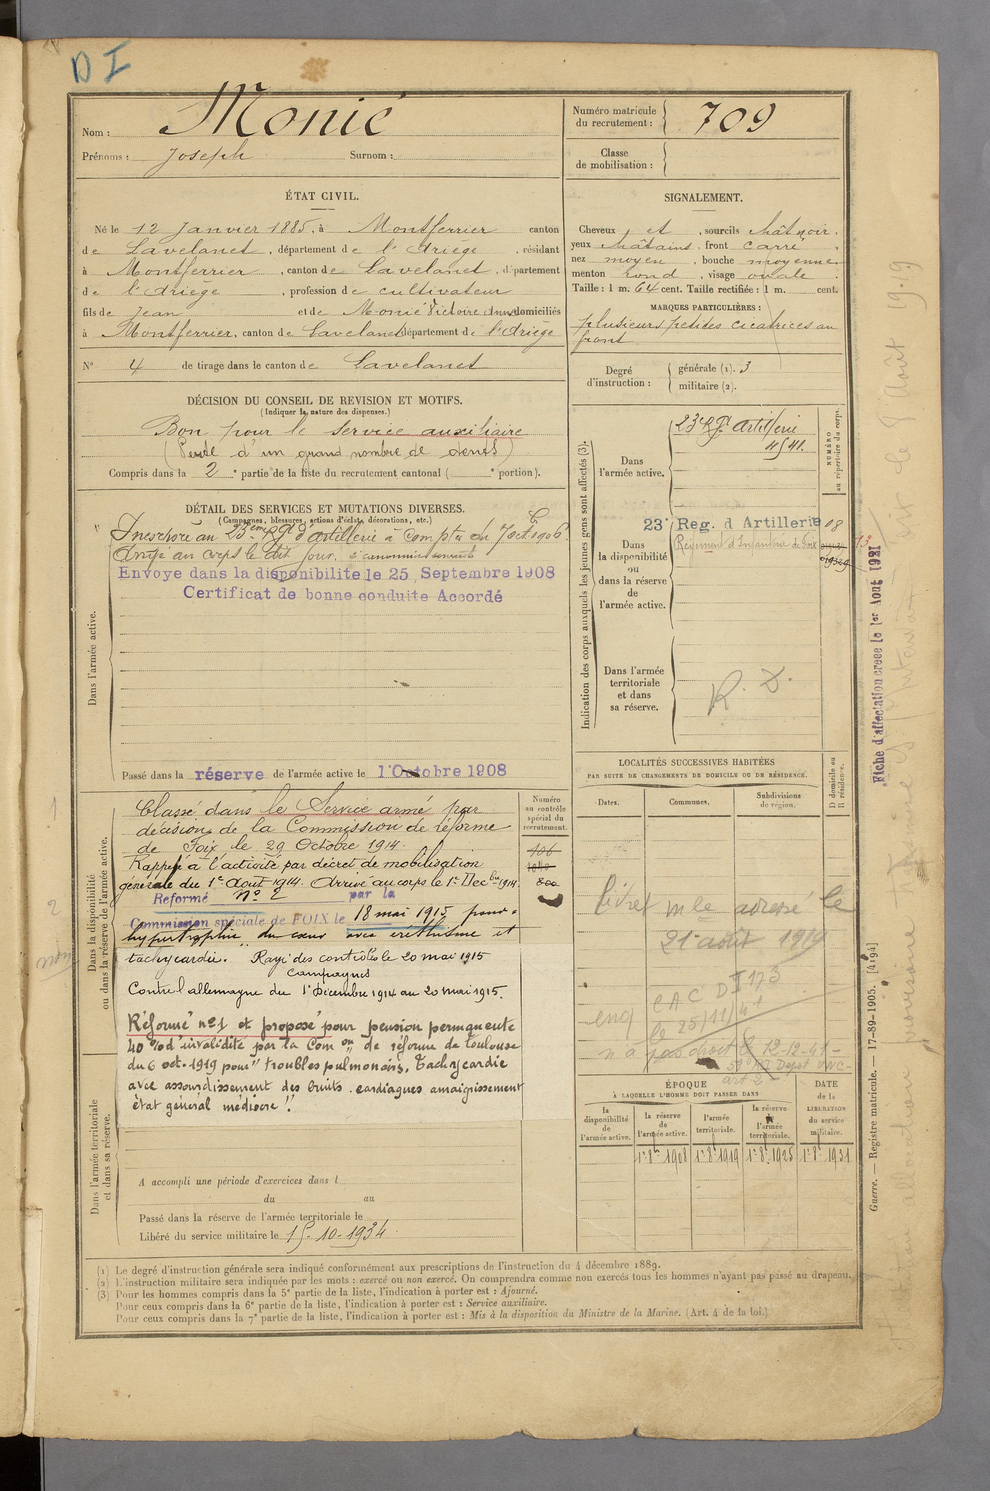 D I
Nom : Monié
Prénoms : Joseph Surnom :
Numéro matricule du recrutement : 709
Classe de mobilisation :
ÉTAT CIVIL.
Né le 12 Janvier 1885, à Montferrier canton
de Lavelanet, département de l'Ariège, résidant
à Montferrier, canton de Lavelanet, département
de l'Ariège, profession de cultivateur
fils de Jean et de Monié Victoire Anne domiciliés
à Montferrier, canton de Lavelanet département de l'Ariège
N° 4 de tirage dans le canton de Lavelanet
SIGNALEMENT.
Cheveux et, sourcils chât noir.
yeux chatains, front carré,
nez moyen, bouche moyenne
menton rond, visage ovale.
Taille : 1 m. 64 cent. Taille rectifiée : 1 m. cent.
MARQUES PARTICULIÈRES :
plusieurs petites cicatrices au
front
Degré d'instruction : générale (1). 3
militaire (2).
DÉCISION DU CONSEIL DE REVISION ET MOTIFS.
(Indiquer la nature des dispenses.)
Bon pour le service auxiliaire
(Perte d'un grand nombre de dents)
Compris dans la 2e partie de la liste du recrutement cantonal ( e portion).
DÉTAIL DES SERVICES ET MUTATIONS DIVERSES.
(Campagnes, blessures, actions d'éclat, décorations, etc.)
au 23ème Rgt d'artillerie à compter du 7 oct 1906.
Arrivé au corps le dit jour.
Envoyé dans la disponibilité le 25 Septembre 1908
Certificat de bonne conduite Accordé
Dans l'armée active.
Passé dans la réserve de l'armée active le 1 Octobre 1908
Indication des corps auxquels les jeunes gens sont affectés (3).
NUMÉRO au répertoire du corps.
Dans l'armée active.
23e Rgt Artillerie
4541.
Dans la disponibilité ou dans la réserve de l'armée active.
23 Reg. d Artillerie 08
Régiment d'Infanterie de Foix
13
Dans l'armée territoriale et dans sa réserve.
R. D.
Fiche d'affectation créée le 1er Aout 1921
Dans la disponibilité ou dans la réserve de l'armée active.
Numéro au contrôle spécial du recrutement.
Classé dans le Service armé par
décision de la Commission de réforme
de Foix le 29 Octobre 1914.
Rappelé à l'activité par décret de mobilisation
générale du 1er Aout 1914. Arrivé au corps le 1er Decbre 1914.
Réformé N° 2 par la
Commission spéciale de FOIX le 18 mai 1915 pour
hypertrophie du cœur avec éréthisme et
tachycardie. Rayé des contrôles le 20 mai 1915
Campagnes
Contre l'allemagne du 1er Décembre 1914 au 20 mai 1915.
Réformé n° 1 et proposé pour pension permanente
40 % d'invalidité par la Com on de réforme de Toulouse
du 6 oct. 1919 pour "troubles pulmonaires, Tachycardie
avec assourdissement des bruits cardiaques amaigrissement
état général médiocre".
Dans l'armée territoriale et dans sa réserve.
A accompli une période d'exercices dans l
du au
Passé dans la réserve de l'armée territoriale le
Libéré du service militaire le 15-10-1934.
LOCALITÉS SUCCESSIVES HABITÉES
PAR SUITE DE CHANGEMENTS DE DOMICILE OU DE RÉSIDENCE.
D domicile ou R résidence.
Dates. Communes. Subdivisions de région.
livret mle adressé le
21 août 1919
CAC D I 173
le 25/11/41
n'a pas droit 12-12-41-
ÉPOQUE
À LAQUELLE L'HOMME DOIT PASSER DANS
DATE de la LIBÉRATION du service militaire.
la disponibilité de l'armée active. la réserve de l'armée active. l'armée territoriale. la réserve de l'armée territoriale.
1er 8bre 1908 1er 8bre 1919 1er 8bre 1925 1er 8bre 1931
(1) Le degré d'instruction générale sera indiqué conformément aux prescriptions de l'instruction du 4 décembre 1889.
(2) L'instruction militaire sera indiquée par les mots : exercé ou non exercé. On comprendra comme non exercés tous les hommes n'ayant pas passé au drapeau.
(3) Pour les hommes compris dans la 5e partie de la liste, l'indication à porter est : Ajourné.
Pour ceux compris dans la 6e partie de la liste, l'indication à porter est : Service auxiliaire.
Pour ceux compris dans la 7e partie de la liste, l'indication à porter est : Mis à la disposition du Ministre de la Marine. (Art. 4 de la loi.)
Guerre. — Registre matricule. — 17-89-1905. [4194]